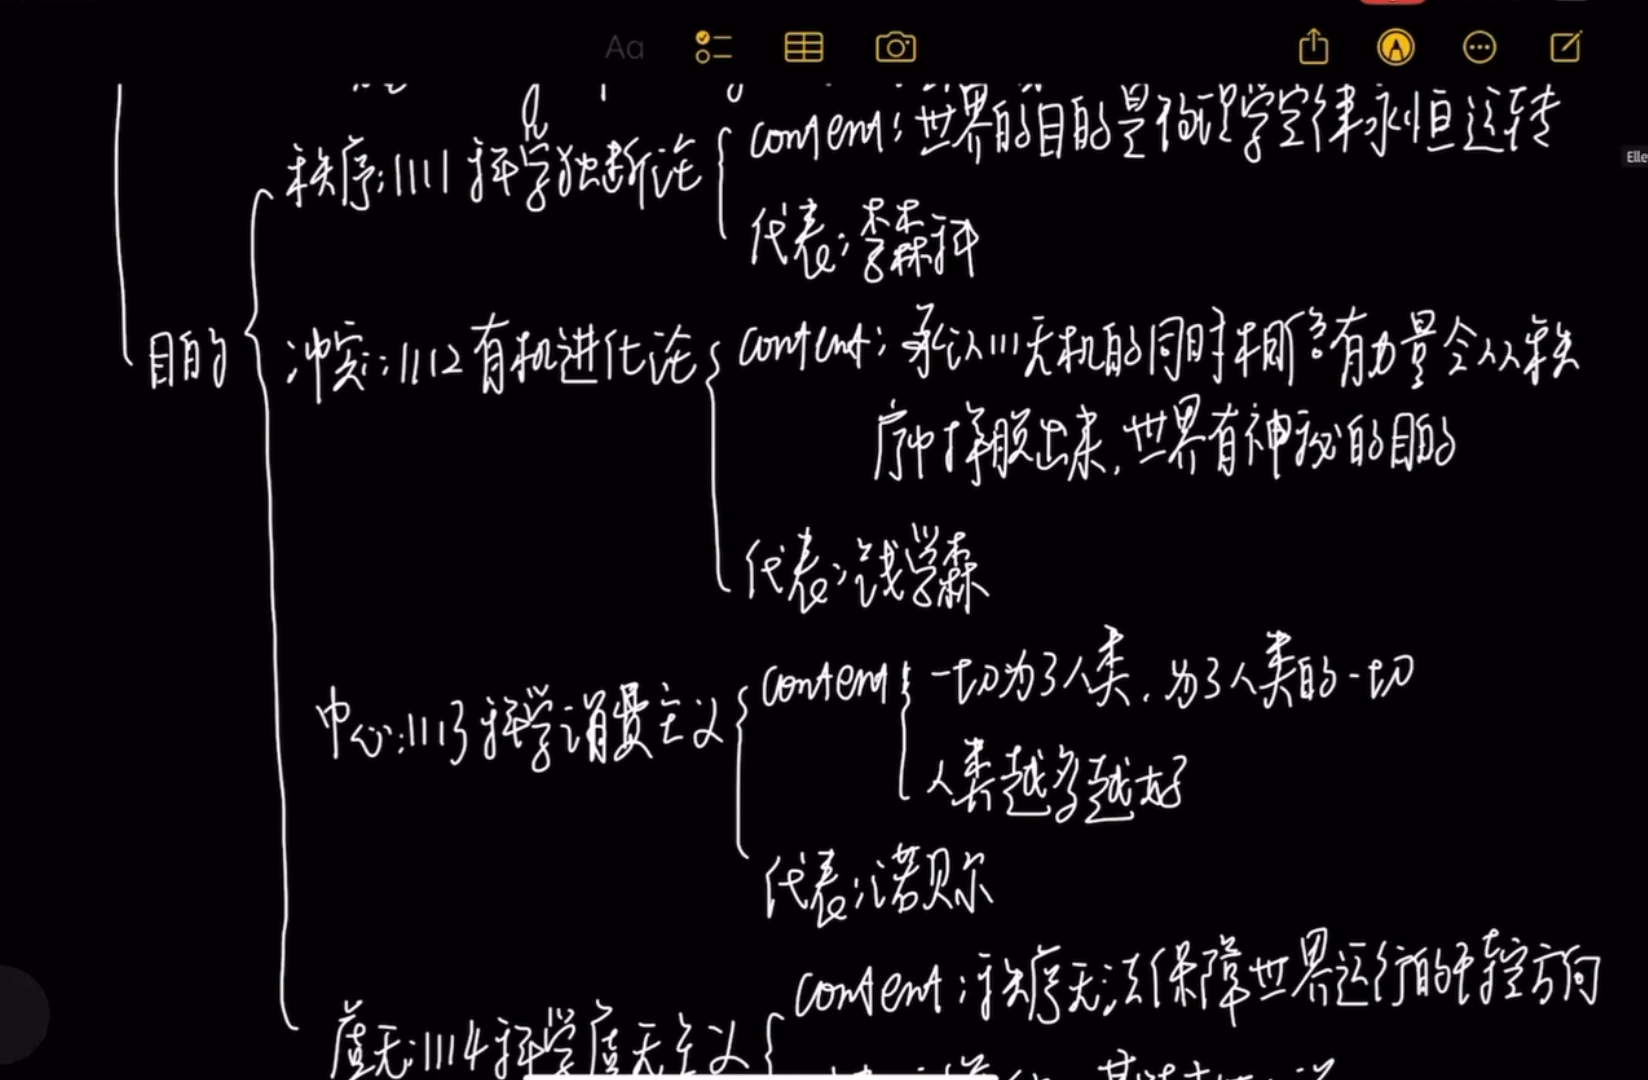 Aa
秩序:1111 科学独断论
content:世界的目的是物理学定律永恒运转
代表:李森科
Elle
目的
冲突:1112有机进化论
content:承认111无机的同时相信有力量会从秩
序中挣脱出来,世界有神秘的目的
代表:钱学森
中心:1113科学消费主义
content:一切为了人类,为了人类的一切
人类越多越好
代表:诺贝尔
content:秩序无法保障世界运行的
方向
虚无:1114科学虚无主义